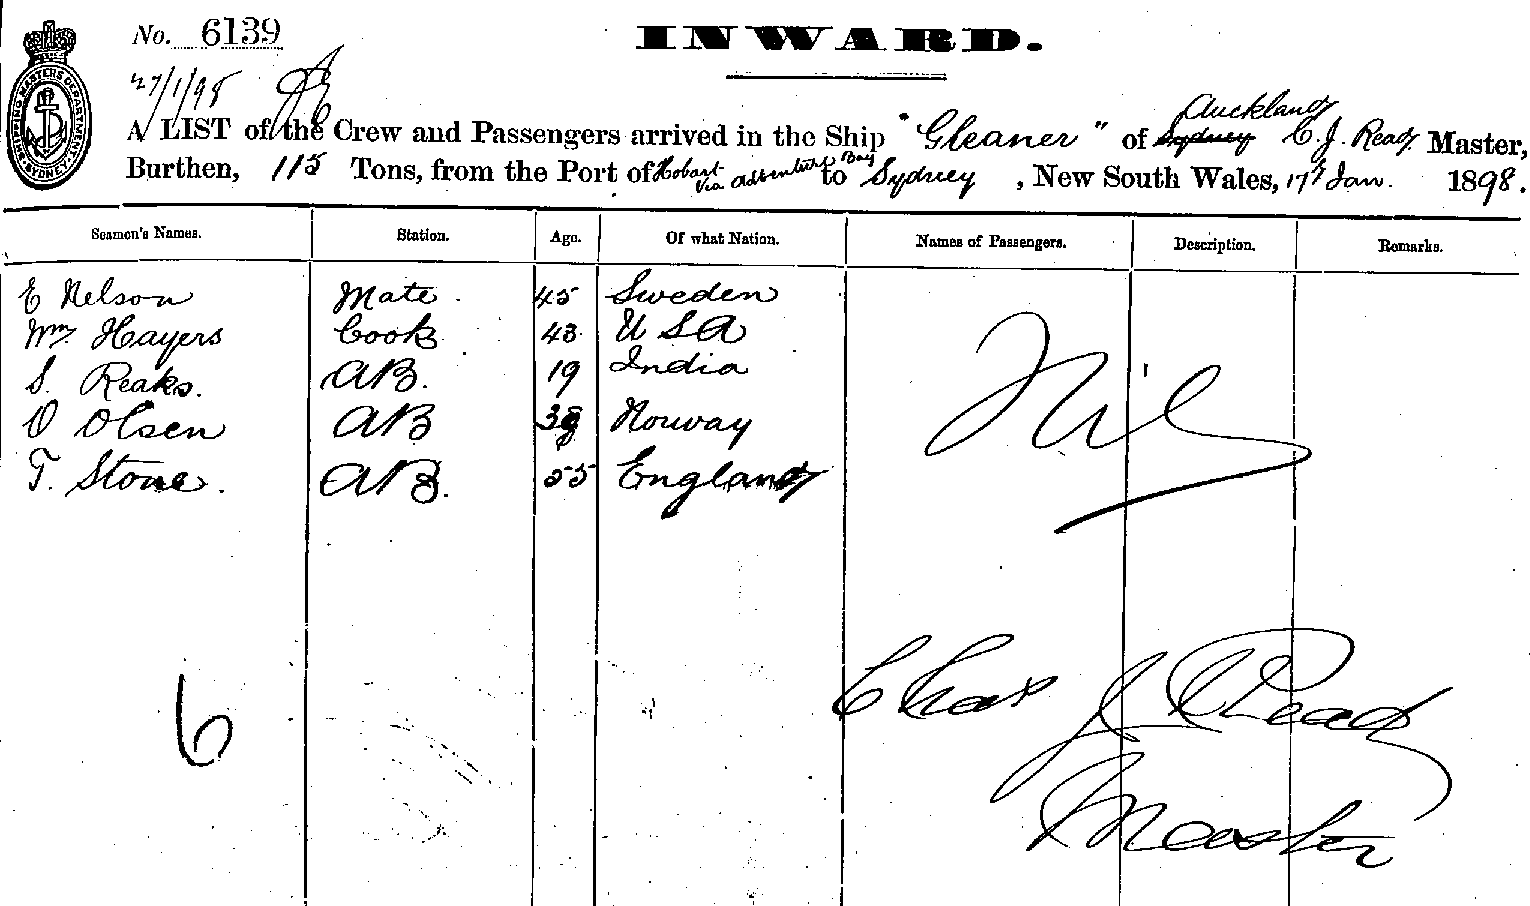 No. 6139
INWARD.
27/1/98
SHIPPING MASTERS DEPARTMENT SYDNEY
Auckland
A LIST of the Crew and Passengers arrived in the Ship "Gleaner" of Sydney C. J. Read Master,
Burthen, 115 Tons, from the Port of Hobart via Adventure Bay to Sydney, New South Wales, 17 Jan. 1898.
Seamen's Names. Station. Age. Of what Nation. Names of Passengers. Description. Remarks.
E Nelson Mate. 45 Sweden
Wm Hayers Cook 43 USA
S. Reaks. AB. 19 India
O Olsen AB Norway
T. Stone. AB. 55 England
Nil
6
Chas J Read
Master